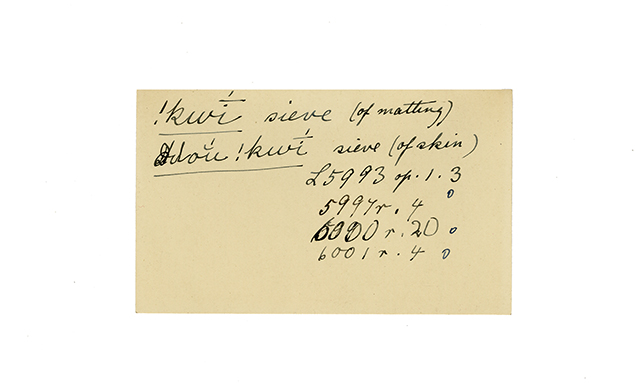 !kwī́ sieve (of matting)
!kwī́ sieve (of skin)
L5993 op. 1. 3
5997 r. 4
r. 20
6001 r. 4